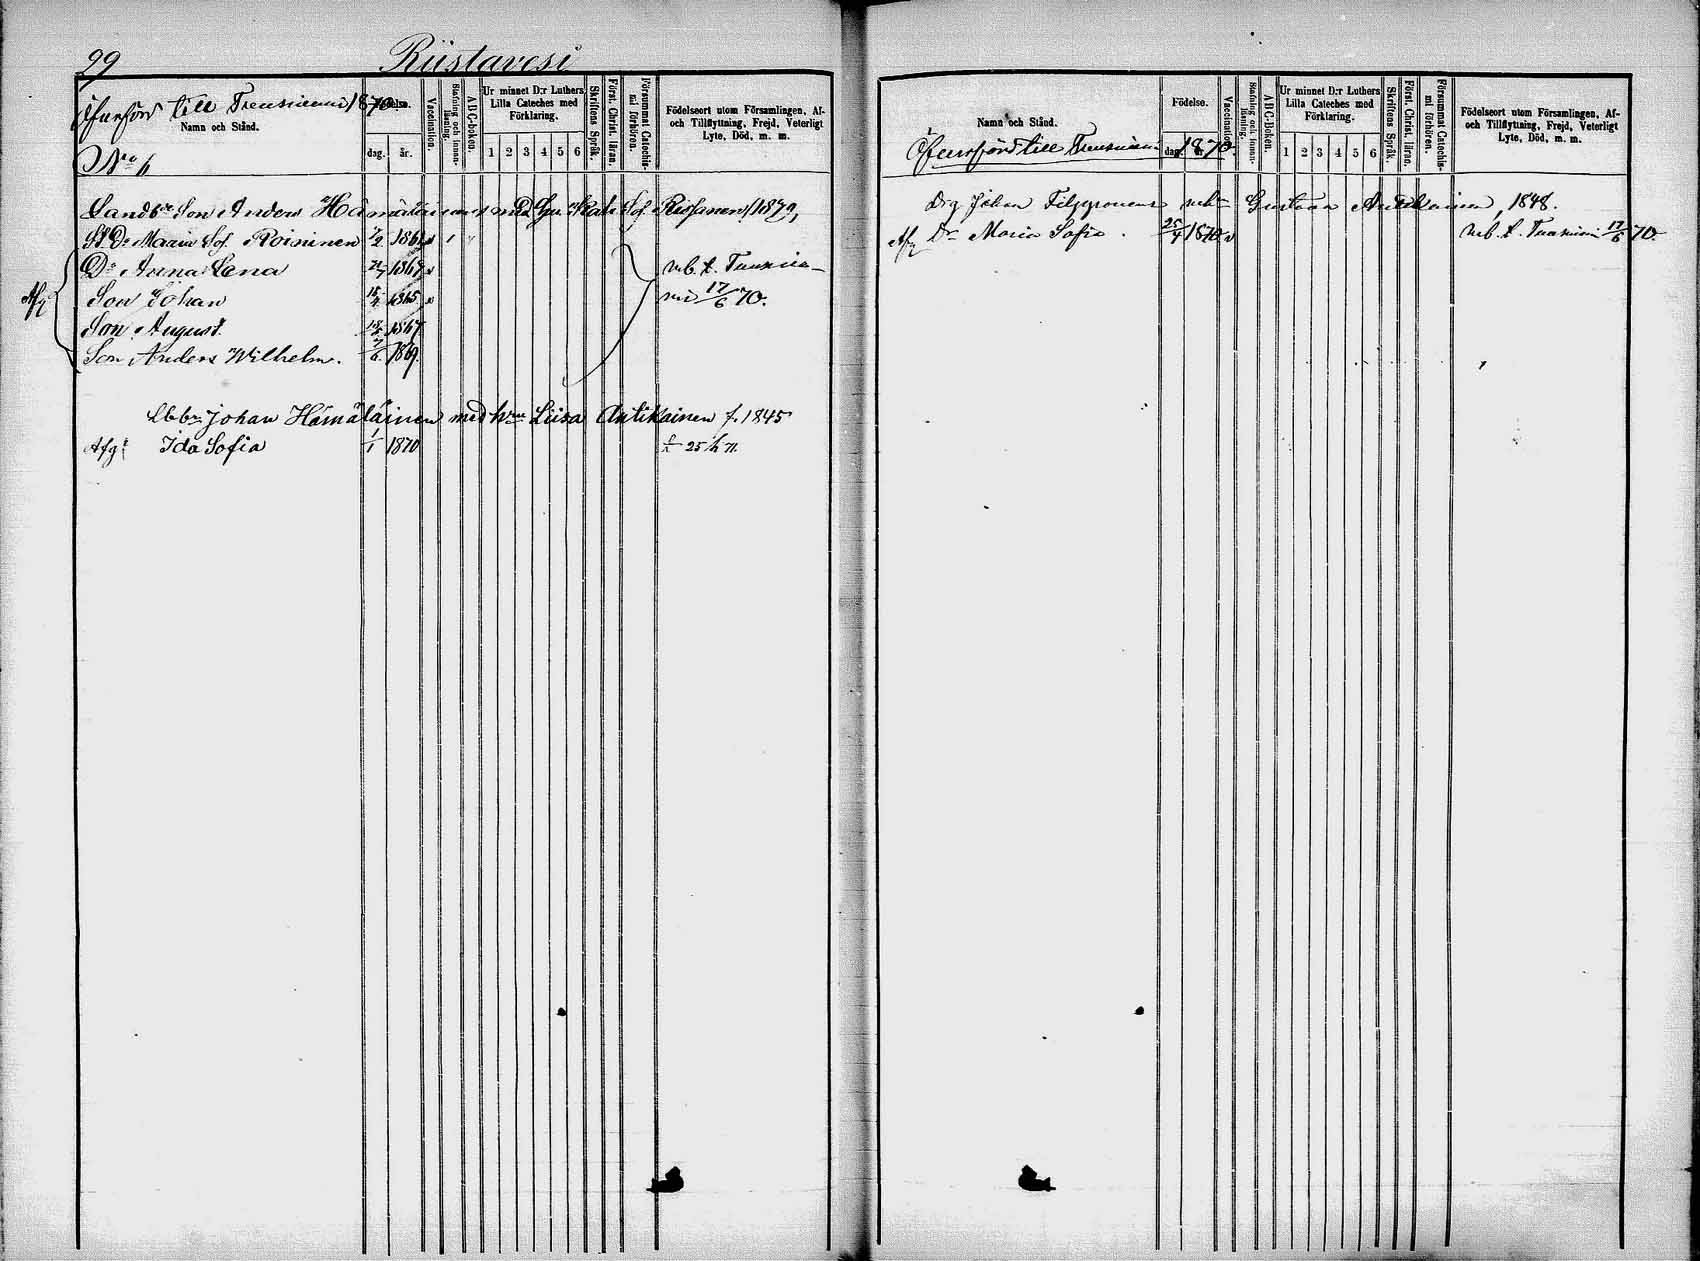 29
Riistavesi
till 1870.
Namn och Stånd.
Födelse.
dag.
år.
Vaccination.
Stafning och innanläsning.
ABC-boken.
Ur minnet D:r Luthers Lilla Cateches med Förklaring.
1 2 3 4 5 6
Skriftens Språk.
Först. Christ. läran.
Försummat Catechismi förhören.
Födelseort utom Församlingen, Af- och Tillflyttning, Frejd, Veterligt Lyte, Död, m. m.
No 6
Son Anders Hämäläinens med Sof. 1879,
Maria Sof. Roininen 1861
Dr Anna Lena mb. t.
Afg Son Johan 15/4 1865 17/6 70.
Son August. 1867
Son Anders Wilhelm. 7/6. 1869.
Johan Hämäläinen med hru Liisa Antikainen f. 1845
Afg Ida Sofia 1/1 1870 25/2 71.
Namn och Stånd.
till 1870.
Födelse.
Vaccination.
Stafning och innanläsning.
ABC-boken.
Ur minnet D:r Luthers Lilla Cateches med Förklaring.
1 2 3 4 5 6
Skriftens Språk.
Först. Christ. läran.
Försummat Catechismi förhören.
Födelseort utom Församlingen, Af- och Tillflyttning, Frejd, Veterligt Lyte, Död, m. m.
Drg Johan Gustava Antikainen, 1848.
Afg Dr Maria Sofia. 25/4 1870 mb. t. 17/6 70.